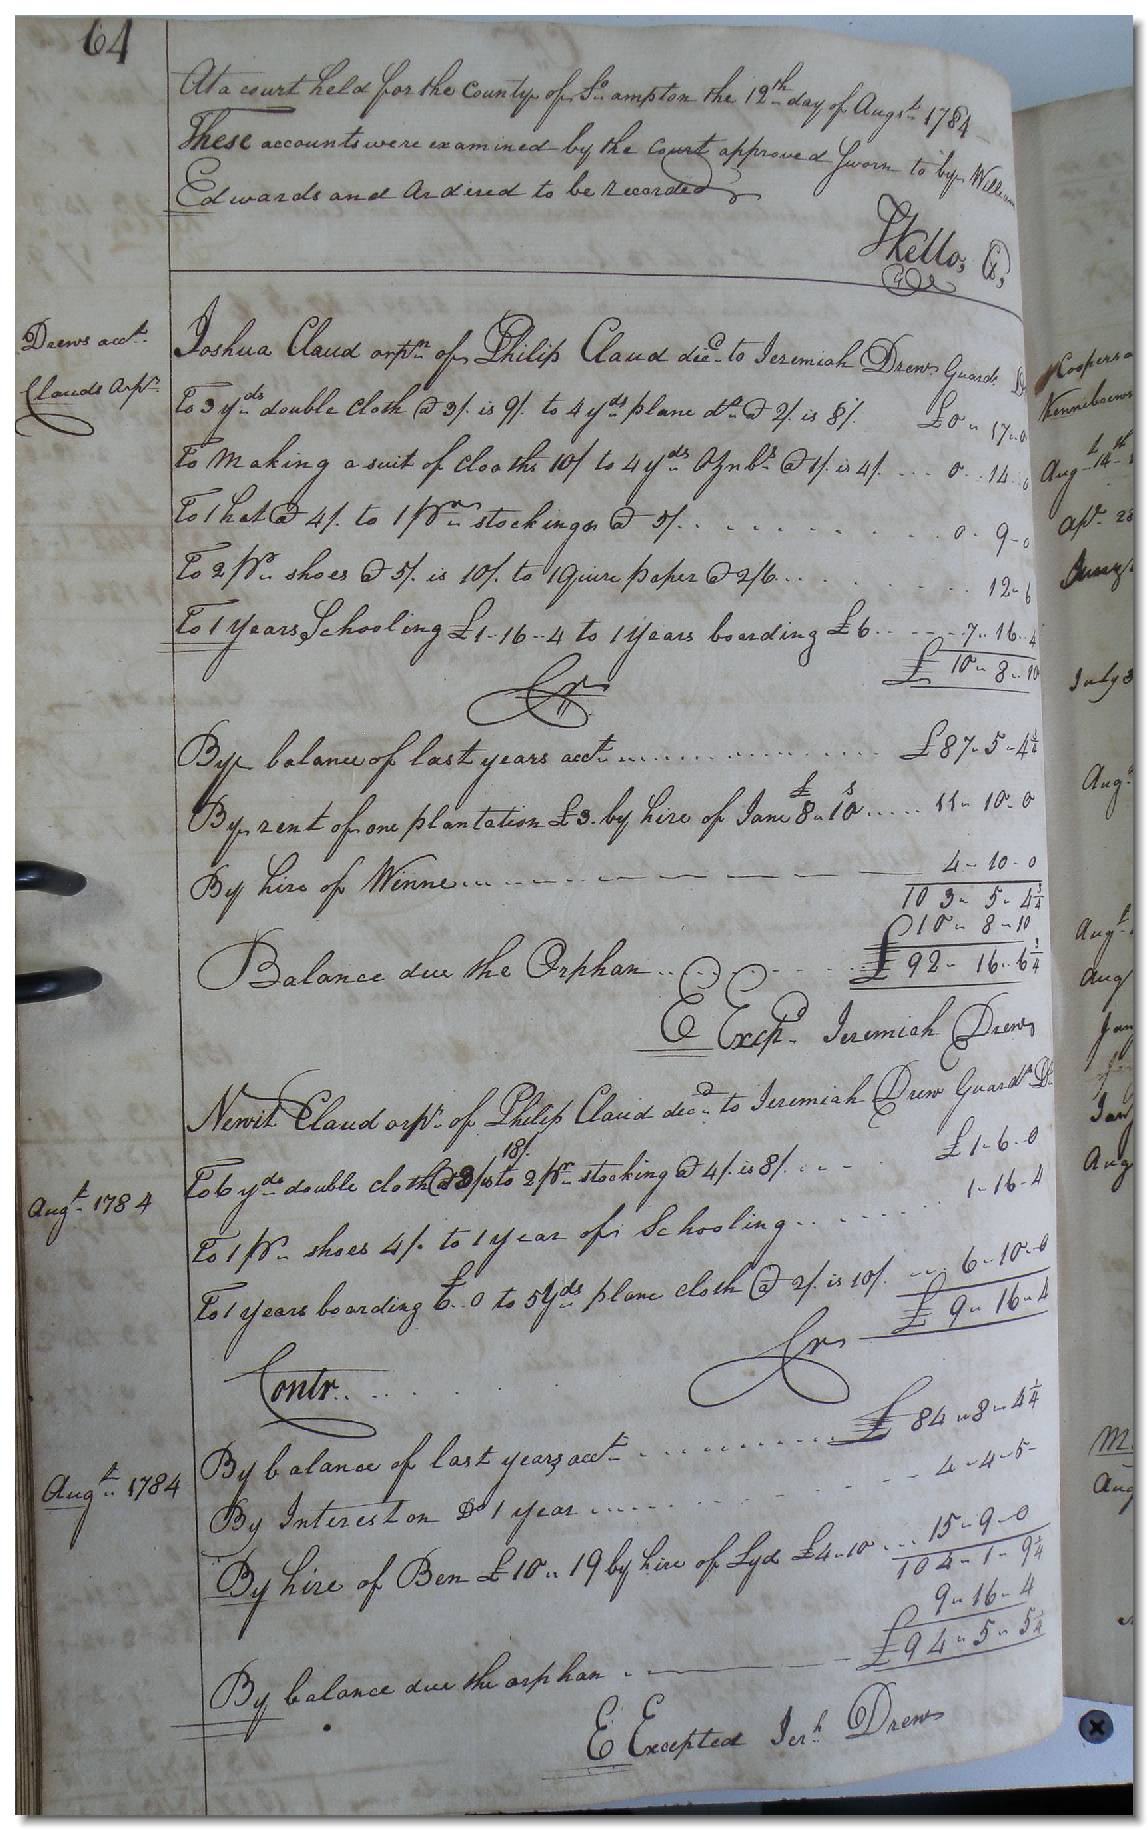 64
At a court held for the County of So. ampton the 12th day of Augst. 1784
These accounts were examined by the court approved Sworn to by William
Edwards and Ordered to be recorded
Drews acct.
Clauds Orpn.
Joshua Claud orpn. of Philip Claud decd. to Jeremiah Drew Guardn. Dr
To 3 yds double cloth @ 3/. is 9/. to 4 yds plane do. @ 2/. is 8/. £0 " 17 " 0
To making a suit of cloaths 10/ to 4 yds Oznbs. @ 1/. is 4/. ... 0 .. 14 .. 0
To 1 hat @ 4/. to 1 pr. stockings @ 5/. . . . 0 . 9 - 0
To 2 pr. shoes @ 5/. is 10/. to 1 Quire paper @ 2/6 . . . 12 - 6
To 1 Years Schooling £1 - 16 - 4 to 1 Years boarding £6 . . . 7 .. 16 .. 4
£ 10 " 8 " 10
Cr
By balance of last years acct. . . . £87 - 5 - 4 3/4
By rent of one plantation £3. by hire of Jane £8 " 10s . . . 11 - 10 - 0
By hire of Winne . . . 4 - 10 - 0
103 " 5 - 4 3/4
£10 " 8 " 10
Balance due the Orphan . . . £ 92 - 16 .. 6 1/4
E Excpd. Jeremiah Drew
Newit Claud orpn. of Philip Claud decd. to Jeremiah Drew Guardn. Dr
18/.
To 6 yds double cloth @ 3/ is to 2 pr. stocking @ 4/. is 8/. . . £ 1 - 6 - 0
Augt. 1784
To 1 pr. shoes 4/. to 1 year of Schooling . . . 1 - 16 - 4
To 1 years boarding £6 .. 0 to 5 yds plane cloth @ 2/. is 10/. . . . 6 - 10 - 0
£ 9 " 16 - 4
Contr. . . . Cr
By balance of last years acct. . . . £ 84 " 8 " 4 1/4
Augt. 1784
By Interest on Do 1 year . . . 4 - 4 - 5
By hire of Ben £10 " 19 by hire of Lyd £4 - 10 . . . 15 - 9 - 0
104 - 1 - 9 1/4
9 " 16 - 4
By balance due the orphan . . . £94 " 5 " 5 1/4
E Excepted Jerh. Drew